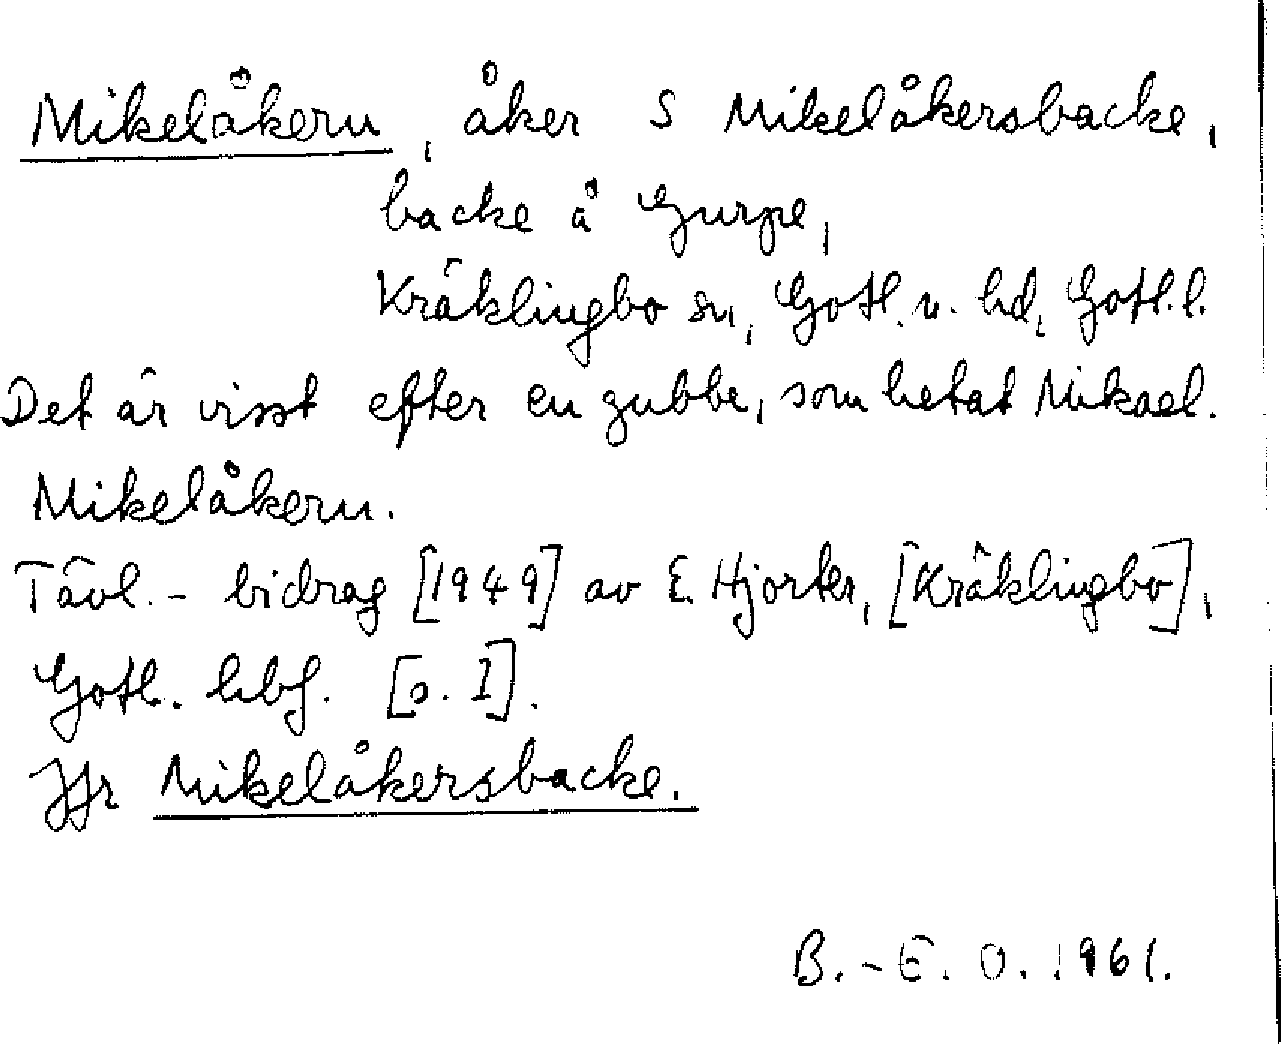 Mikelåkern, åker S Mikelåkersbacke,
backe å Gurpe,
Kräklingbo sn, Gotl. n. hd, Gotl. l.
Det är visst efter en gubbe, som hetat Mikael.
Mikelåkern.
Tävl.-bidrag [1949] av E. Hjorter, [Kräklingbo],
Gotl. hbf. [s. I].
Jfr Mikelåkersbacke.
B.-E. O. 1961.